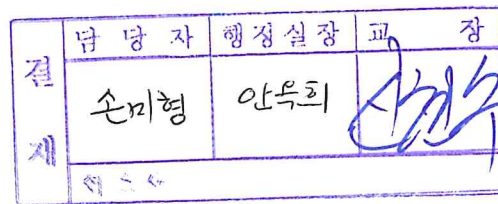 결재
담당자 행정실장 교장
손미형 안옥희